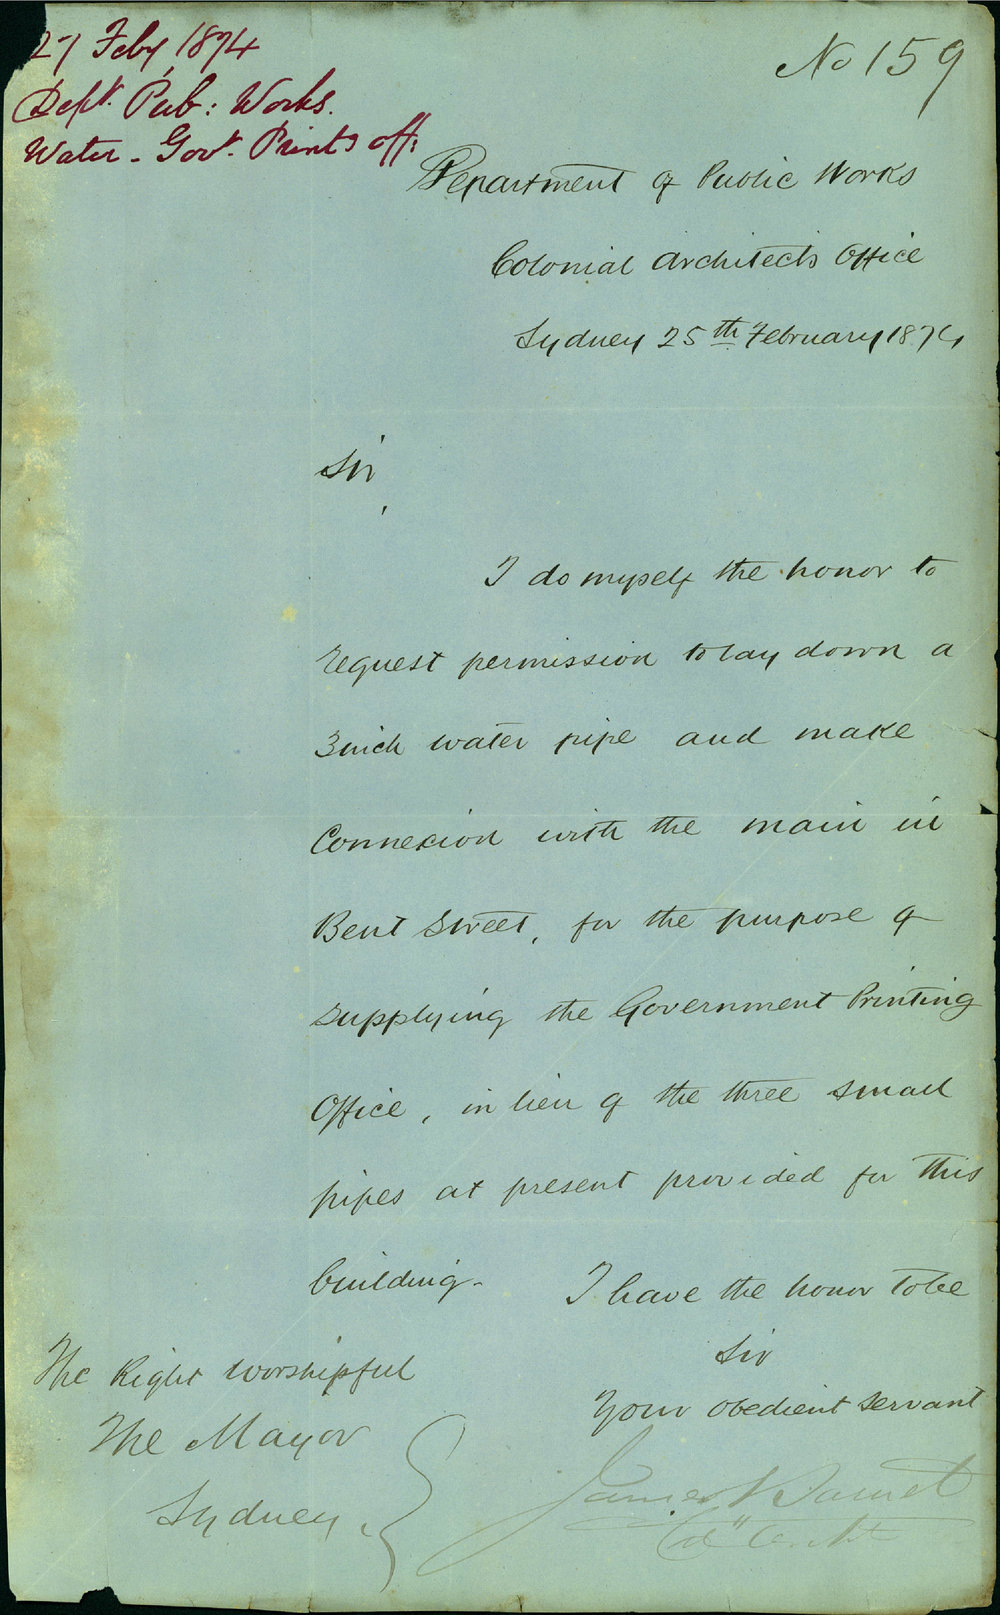 27 Feby, 1874
Dept. Pub: Works.
Water - Govt. Printg off:
No 159
Department of Public Works
Colonial Architects Office
Sydney 25th February 1874
Sir,
I do myself the honor to
request permission to lay down a
3 inch water pipe and make
Connexion with the main in
Bent Street, for the purpose of
supplying the Government Printing
Office, in lieu of the three small
pipes at present provided for this
building.
I have the honor to be
Sir
Your obedient servant
James Barnet
Col" Archt
The Right Worshipful
The Mayor
Sydney.